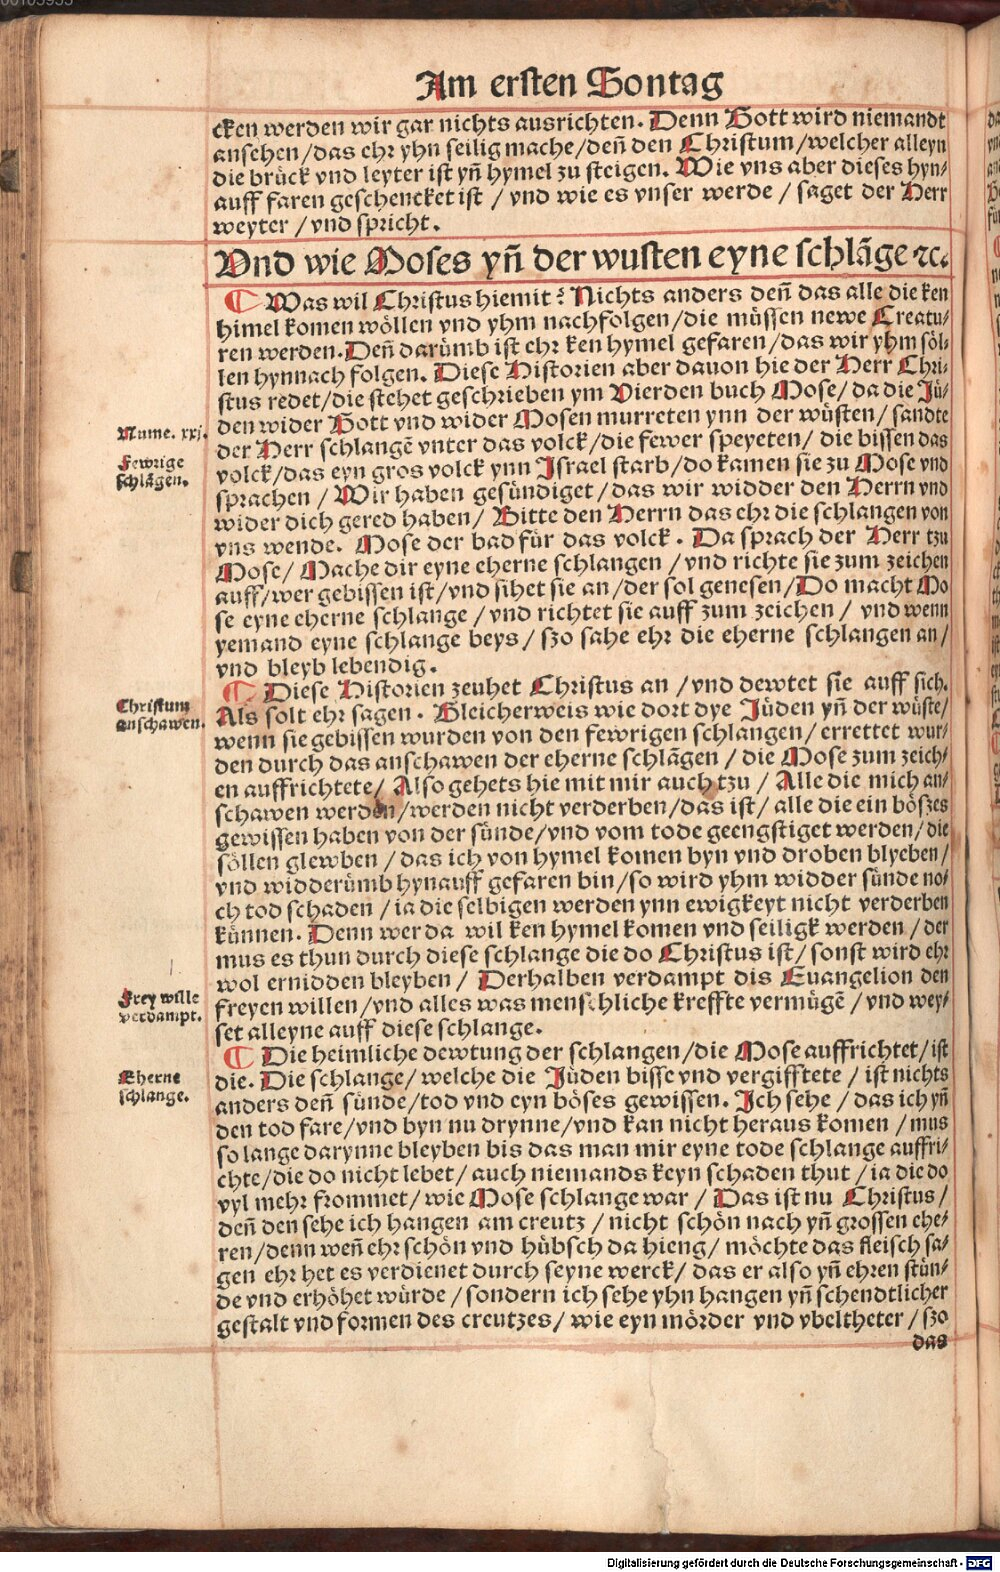 Am ersten Sontag
cken werden wir gar nichts ausrichten. Denn Gott wird niemandt
ansehen / das ehr yhn seilig mache / deñ den Christum / welcher alleyn
die brück vnd leyter ist yñ hymel zu steigen. Wie vns aber dieses hyn-
auff faren geschencket ist / vnd wie es vnser werde / saget der Herr
weyter / vnd spricht.
Vnd wie Moses yñ der wusten eyne schlãge ꝛc.
¶ Was wil Christus hiemit? Nichts anders deñ das alle die ken
himel komen wöllen vnd yhm nachfolgen / die müssen newe Creatu-
ren werden. Deñ darümb ist ehr ken hymel gefaren / das wir yhm söl-
len hynnach folgen. Diese Historien aber dauon hie der Herr Chri-
stus redet / die stehet geschrieben ym Vierden buch Mose / da die Jü-
den wider Gott vnd wider Mosen murreten ynn der wüsten / sandte
Nume. xxj.
der Herr schlangẽ vnter das volck / die fewer speyeten / die bissen das
Fewrige
schlãgen.
volck / das eyn gros volck ynn Israel starb / do kamen sie zu Mose vnd
sprachen / Wir haben gesündiget / das wir widder den Herrn vnd
wider dich gered haben / Bitte den Herrn das ehr die schlangen von
vns wende. Mose der bad für das volck. Da sprach der Herr tzu
Mose / Mache dir eyne eherne schlangen / vnd richte sie zum zeichen
auff / wer gebissen ist / vnd sihet sie an / der sol genesen / Do macht Mo
se eyne eherne schlange / vnd richtet sie auff zum zeichen / vnd wenn
yemand eyne schlange beys / szo sahe ehr die eherne schlangen an /
vnd bleyb lebendig.
¶ Diese Historien zeuhet Christus an / vnd dewtet sie auff sich.
Christum
anschawen.
Als solt ehr sagen. Gleicherweis wie dort dye Jüden yñ der wüste /
wenn sie gebissen wurden von den fewrigen schlangen / errettet wur-
den durch das anschawen der eherne schlãgen / die Mose zum zeich-
en auffrichtete / Also gehets hie mit mir auch tzu / Alle die mich an-
schawen werden / werden nicht verderben / das ist / alle die ein böszes
gewissen haben von der sünde / vnd vom tode geengstiget werden / die
söllen glewben / das ich von hymel komen byn vnd droben blyeben /
vnd widderümb hynauff gefaren bin / so wird yhm widder sünde no-
ch tod schaden / ia die selbigen werden ynn ewigkeyt nicht verderben
künnen. Denn wer da wil ken hymel komen vnd seiligk werden / der
mus es thun durch diese schlange die do Christus ist / sonst wird ehr
wol ernidden bleyben / Derhalben verdampt dis Euangelion den
Frey wille
verdampt.
freyen willen / vnd alles was menschliche kreffte vermügẽ / vnd wey-
set alleyne auff diese schlange.
¶ Die heimliche dewtung der schlangen / die Mose auffrichtet / ist
Eherne
schlange.
die. Die schlange / welche die Jüden bisse vnd vergifftete / ist nichts
anders deñ sünde / tod vnd eyn böses gewissen. Ich sehe / das ich yñ
den tod fare / vnd byn nu drynne / vnd kan nicht heraus komen / mus
so lange darynne bleyben bis das man mir eyne tode schlange auffri-
chte / die do nicht lebet / auch niemands keyn schaden thut / ia die do
vyl mehr frommet / wie Mose schlange war / Das ist nu Christus /
deñ den sehe ich hangen am creutz / nicht schön nach yñ grossen ehe-
ren / denn weñ ehr schön vnd hübsch da hieng / möchte das fleisch sa-
gen ehr het es verdienet durch seyne werck / das er also yñ ehren stün-
de vnd erhöhet würde / sondern ich sehe yhn hangen yñ schendtlicher
gestalt vnd formen des creutzes / wie eyn mörder vnd vbeltheter / szo
das
Digitalisierung gefördert durch die Deutsche Forschungsgemeinschaft - DFG